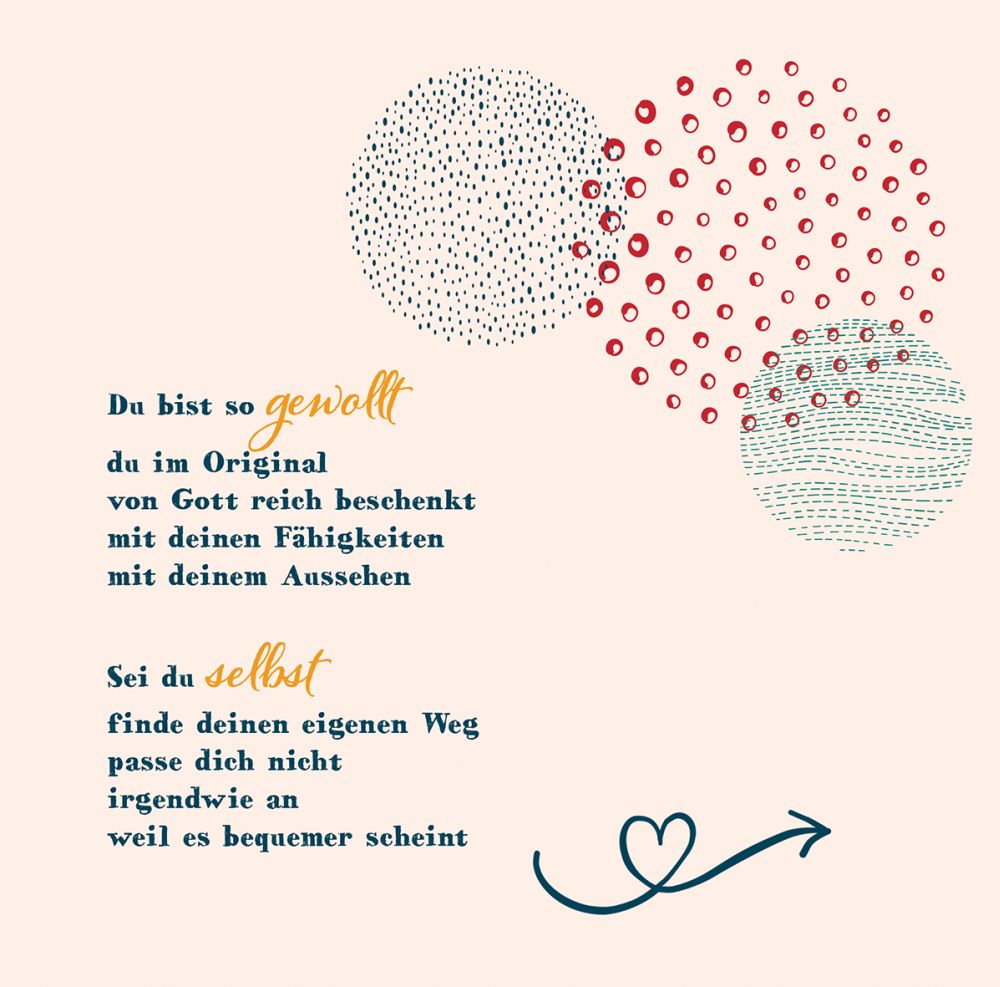 Du bist so gewollt
du im Original
von Gott reich beschenkt
mit deinen Fähigkeiten
mit deinem Aussehen
Sei du selbst
finde deinen eigenen Weg
passe dich nicht
irgendwie an
weil es bequemer scheint